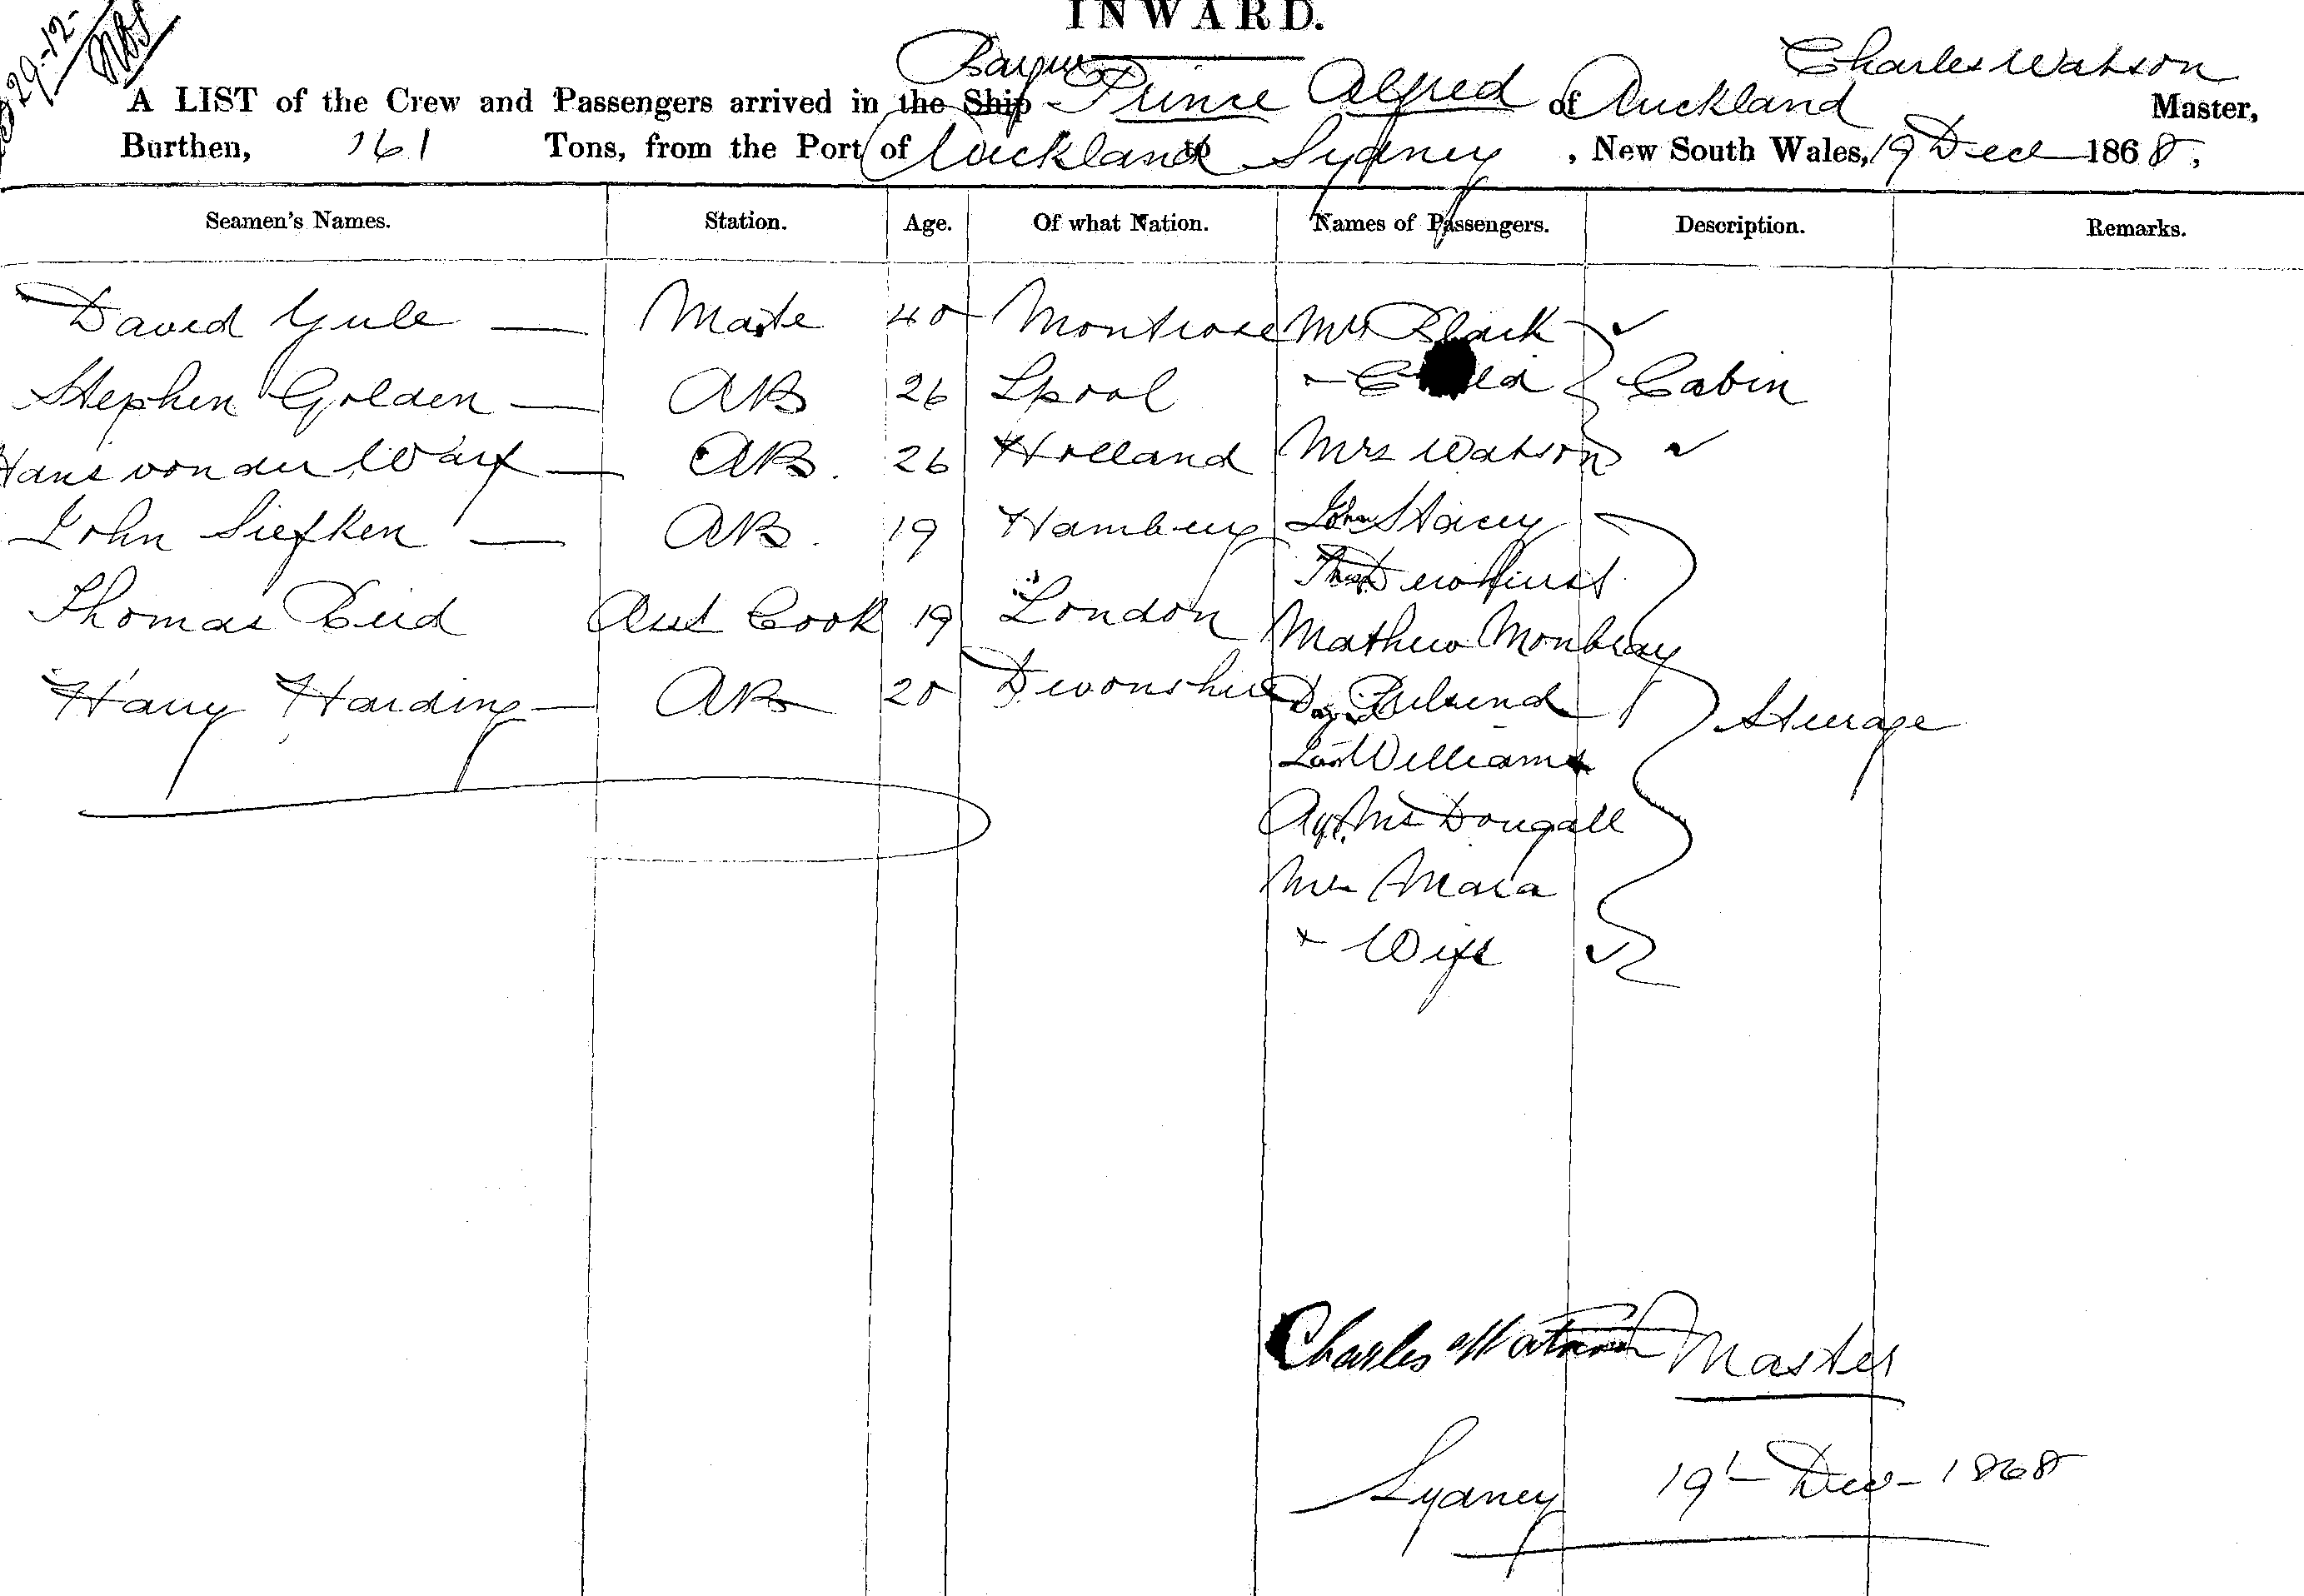 29-12-
INWARD.
Barque
Charles Watson
A LIST of the Crew and Passengers arrived in the Ship Prince Alfred of Auckland Master,
Burthen, 161 Tons, from the Port of Auckland to Sydney, New South Wales, 19 Dec 1868,
Seamen's Names. Station. Age. Of what Nation. Names of Passengers. Description. Remarks.
David Yule — Mate 40 Montrose Mrs Black ✓
Stephen Golden — AB 26 Lpool + Child Cabin
Hans von der Warf — AB. 26 Holland Mrs Watson ✓
John Siefken — AB. 19 Hamburg John Stacey
Thos Dewhurst
Thomas Reid Cook 19 London Mathew Monbray
Harry Harding — AB 20 Devonshire
Steerage
Williams
McDougall
Mr Mara
+ Wife ✓
Charles Watson Master
Sydney 19th Dec - 1868